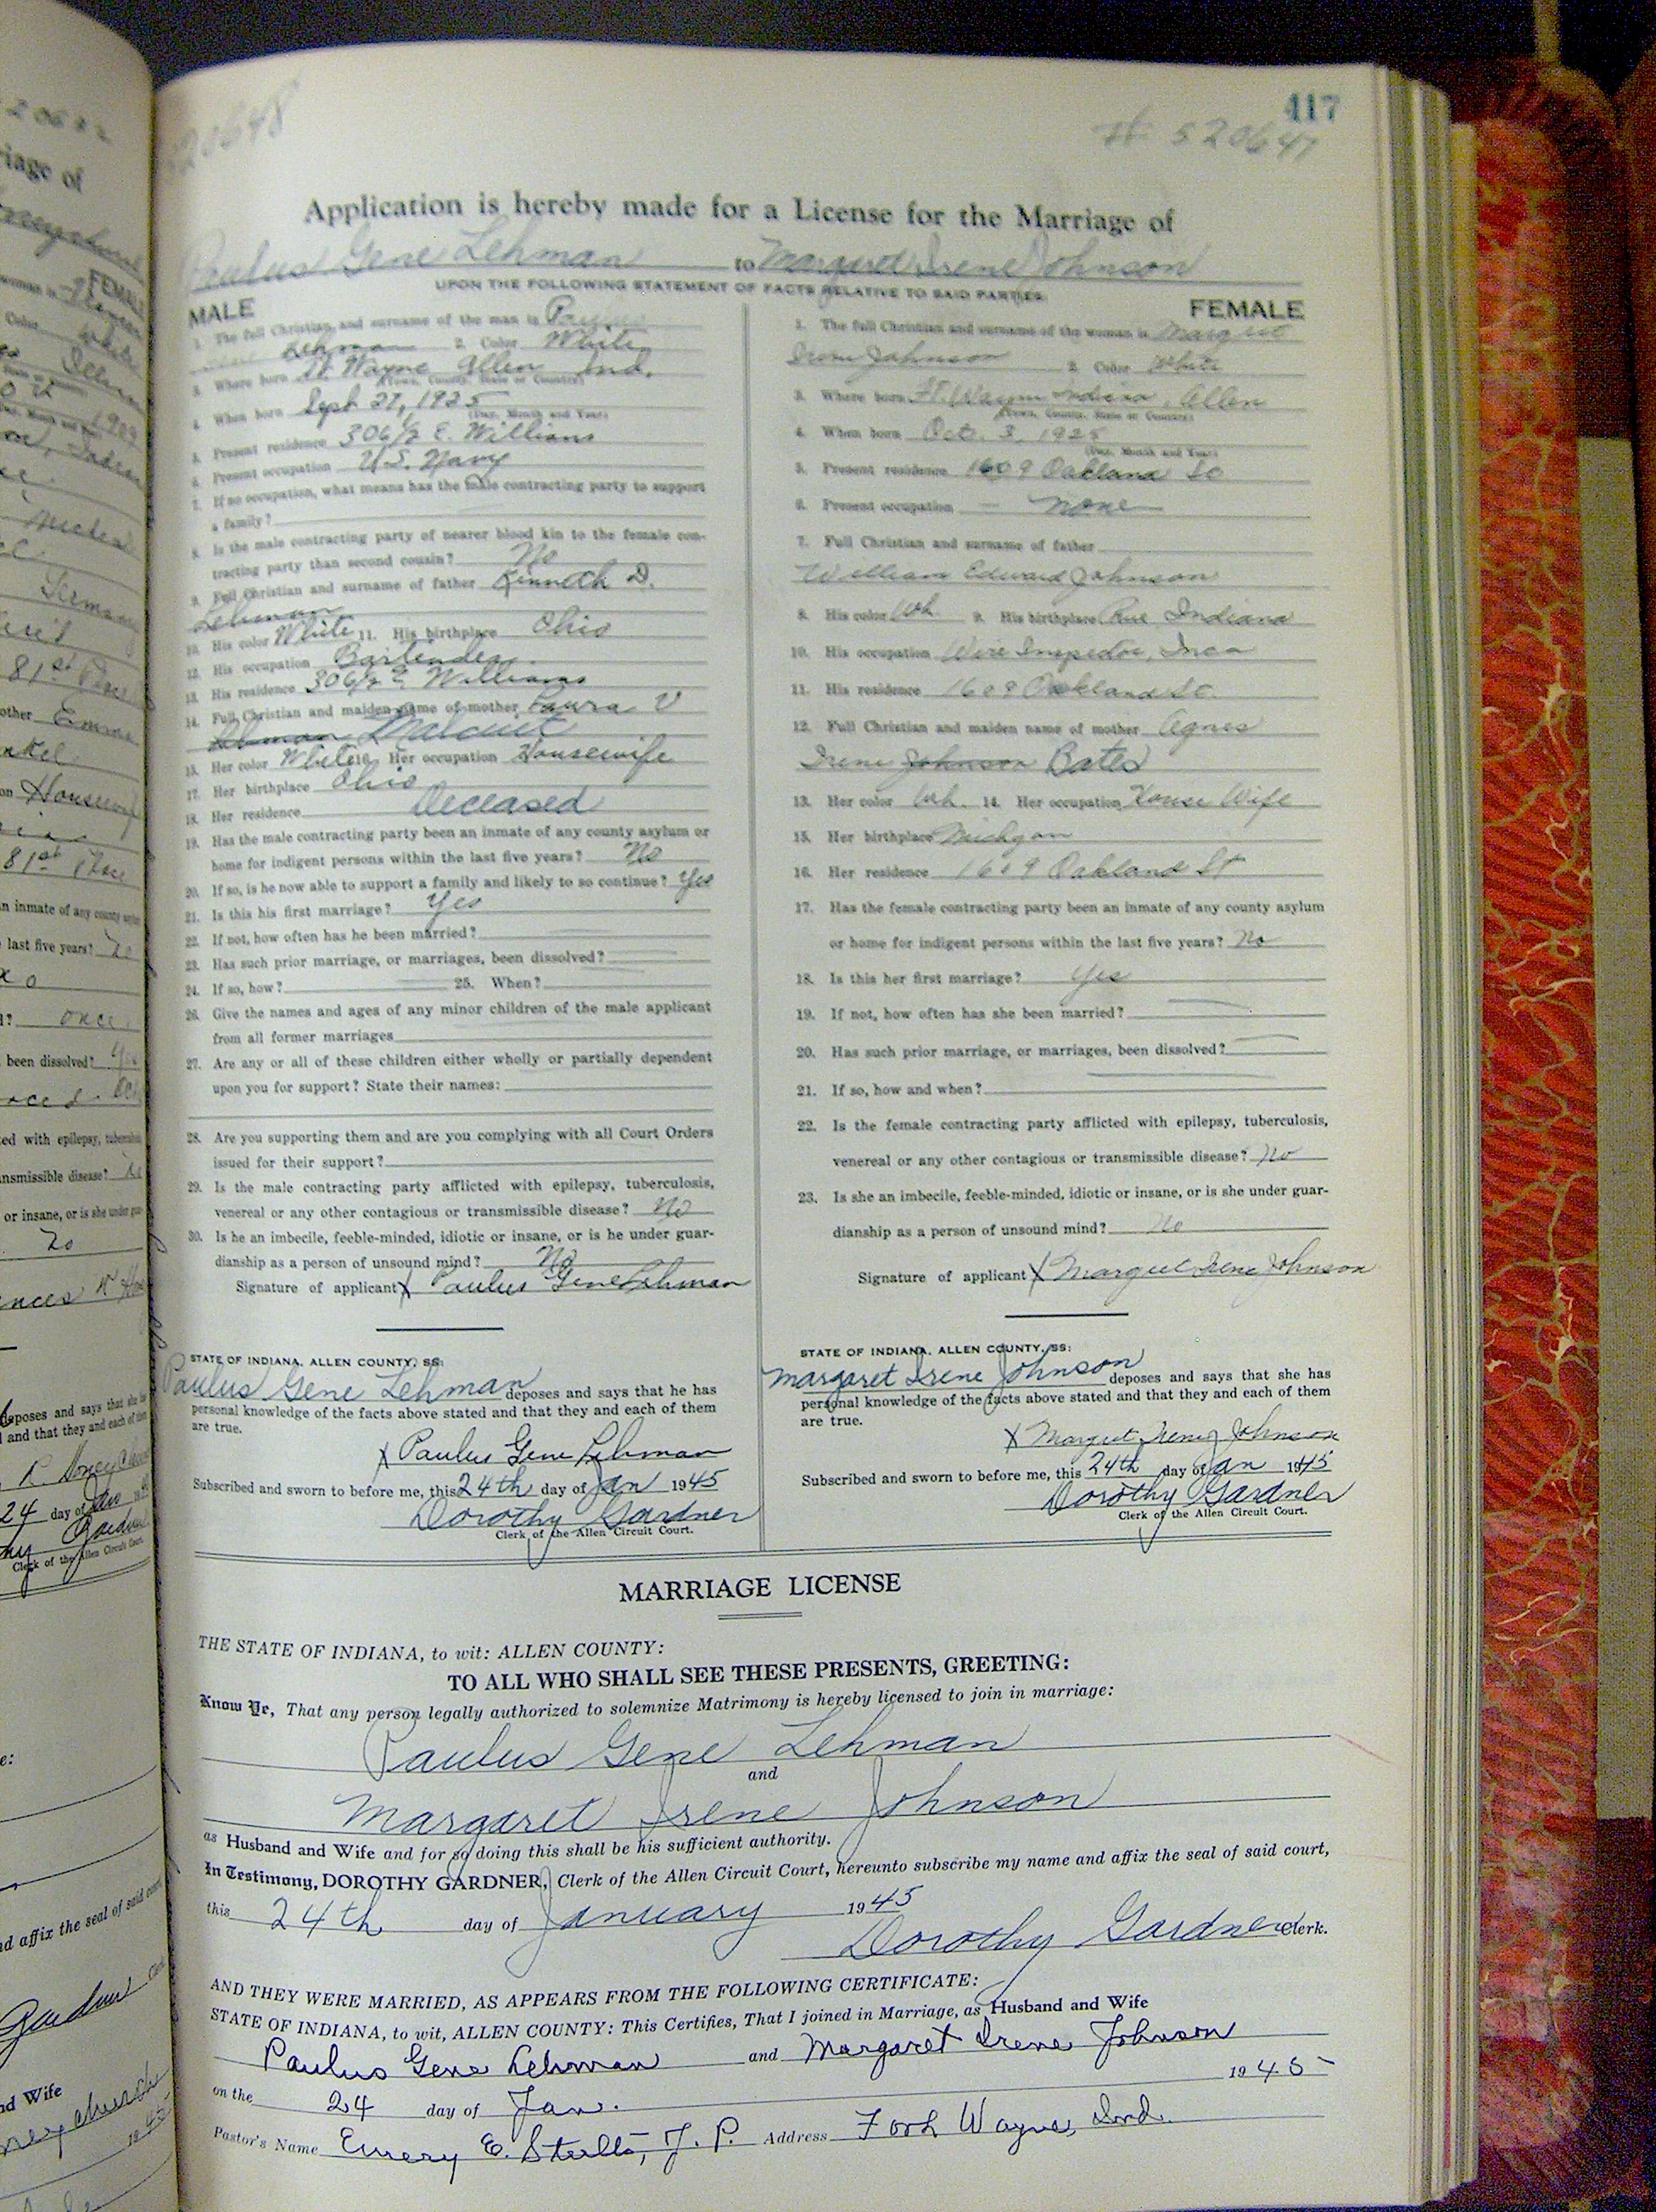 417
# S 20647
20648
Application is hereby made for a License for the Marriage of
Paulus Gene Lehman to Margaret Irene Johnson
UPON THE FOLLOWING STATEMENT OF FACTS RELATIVE TO SAID PARTIES:
MALE
1. The full Christian and surname of the man is Paulus
Lehman 2. Color White
3. Where born Ft Wayne Allen Ind.
(Town, County, State or Country)
4. When born Sept 27, 1925
(Day, Month and Year)
5. Present residence 306½ E. Williams
6. Present occupation U.S. Navy
7. If no occupation, what means has the male contracting party to support
a family?
8. Is the male contracting party of nearer blood kin to the female con-
tracting party than second cousin? No
9. Full Christian and surname of father Kenneth D.
Lehman
10. His color White 11. His birthplace Ohio
12. His occupation Bartender
13. His residence 306½ E. Williams
14. Full Christian and maiden name of mother Laura V
Lehman Malcuit
15. Her color White 16. Her occupation Housewife
17. Her birthplace Ohio
18. Her residence Deceased
19. Has the male contracting party been an inmate of any county asylum or
home for indigent persons within the last five years? No
20. If so, is he now able to support a family and likely to so continue? Yes
21. Is this his first marriage? Yes
22. If not, how often has he been married?
23. Has such prior marriage, or marriages, been dissolved?
24. If so, how? 25. When?
26. Give the names and ages of any minor children of the male applicant
from all former marriages
27. Are any or all of these children either wholly or partially dependent
upon you for support? State their names:
28. Are you supporting them and are you complying with all Court Orders
issued for their support?
29. Is the male contracting party afflicted with epilepsy, tuberculosis,
venereal or any other contagious or transmissible disease? No
30. Is he an imbecile, feeble-minded, idiotic or insane, or is he under guar-
dianship as a person of unsound mind? No
Signature of applicant X Paulus Gene Lehman
STATE OF INDIANA, ALLEN COUNTY, SS:
Paulus Gene Lehman deposes and says that he has
personal knowledge of the facts above stated and that they and each of them
are true.
X Paulus Gene Lehman
Subscribed and sworn to before me, this 24th day of Jan 1945
Dorothy Gardner
Clerk of the Allen Circuit Court.
FEMALE
1. The full Christian and surname of the woman is Margret
Irene Johnson 2. Color White
3. Where born Ft. Wayne Indiana, Allen
(Town, County, State or Country)
4. When born Oct. 3, 1925
(Day, Month and Year)
5. Present residence 1609 Oakland St
6. Present occupation — none
7. Full Christian and surname of father
William Edward Johnson
8. His color Wh. 9. His birthplace Indiana
10. His occupation Wire Inspector, Inca
11. His residence 1609 Oakland St.
12. Full Christian and maiden name of mother Agnes
Irene Johnson Bates
13. Her color Wh. 14. Her occupation House Wife
15. Her birthplace Michgan
16. Her residence 1609 Oakland St
17. Has the female contracting party been an inmate of any county asylum
or home for indigent persons within the last five years? No
18. Is this her first marriage? Yes
19. If not, how often has she been married?
20. Has such prior marriage, or marriages, been dissolved?
21. If so, how and when?
22. Is the female contracting party afflicted with epilepsy, tuberculosis,
venereal or any other contagious or transmissible disease? No
23. Is she an imbecile, feeble-minded, idiotic or insane, or is she under guar-
dianship as a person of unsound mind? No
Signature of applicant X Margret Irene Johnson
STATE OF INDIANA, ALLEN COUNTY, SS:
Margaret Irene Johnson deposes and says that she has
personal knowledge of the facts above stated and that they and each of them
are true.
X Margret Irene Johnson
Subscribed and sworn to before me, this 24th day of Jan 1945
Dorothy Gardner
Clerk of the Allen Circuit Court.
MARRIAGE LICENSE
THE STATE OF INDIANA, to wit: ALLEN COUNTY:
TO ALL WHO SHALL SEE THESE PRESENTS, GREETING:
Know Ye, That any person legally authorized to solemnize Matrimony is hereby licensed to join in marriage:
Paulus Gene Lehman
and
Margaret Irene Johnson
as Husband and Wife and for so doing this shall be his sufficient authority.
In Testimony, DOROTHY GARDNER, Clerk of the Allen Circuit Court, hereunto subscribe my name and affix the seal of said court,
this 24th day of January 1945
Dorothy Gardner Clerk.
AND THEY WERE MARRIED, AS APPEARS FROM THE FOLLOWING CERTIFICATE:
STATE OF INDIANA, to wit, ALLEN COUNTY: This Certifies, That I joined in Marriage, as Husband and Wife
Paulus Gene Lehman and Margaret Irene Johnson
on the 24 day of Jan. 1945
Pastor's Name Emery E. J. P. Address Fort Wayne, Ind.